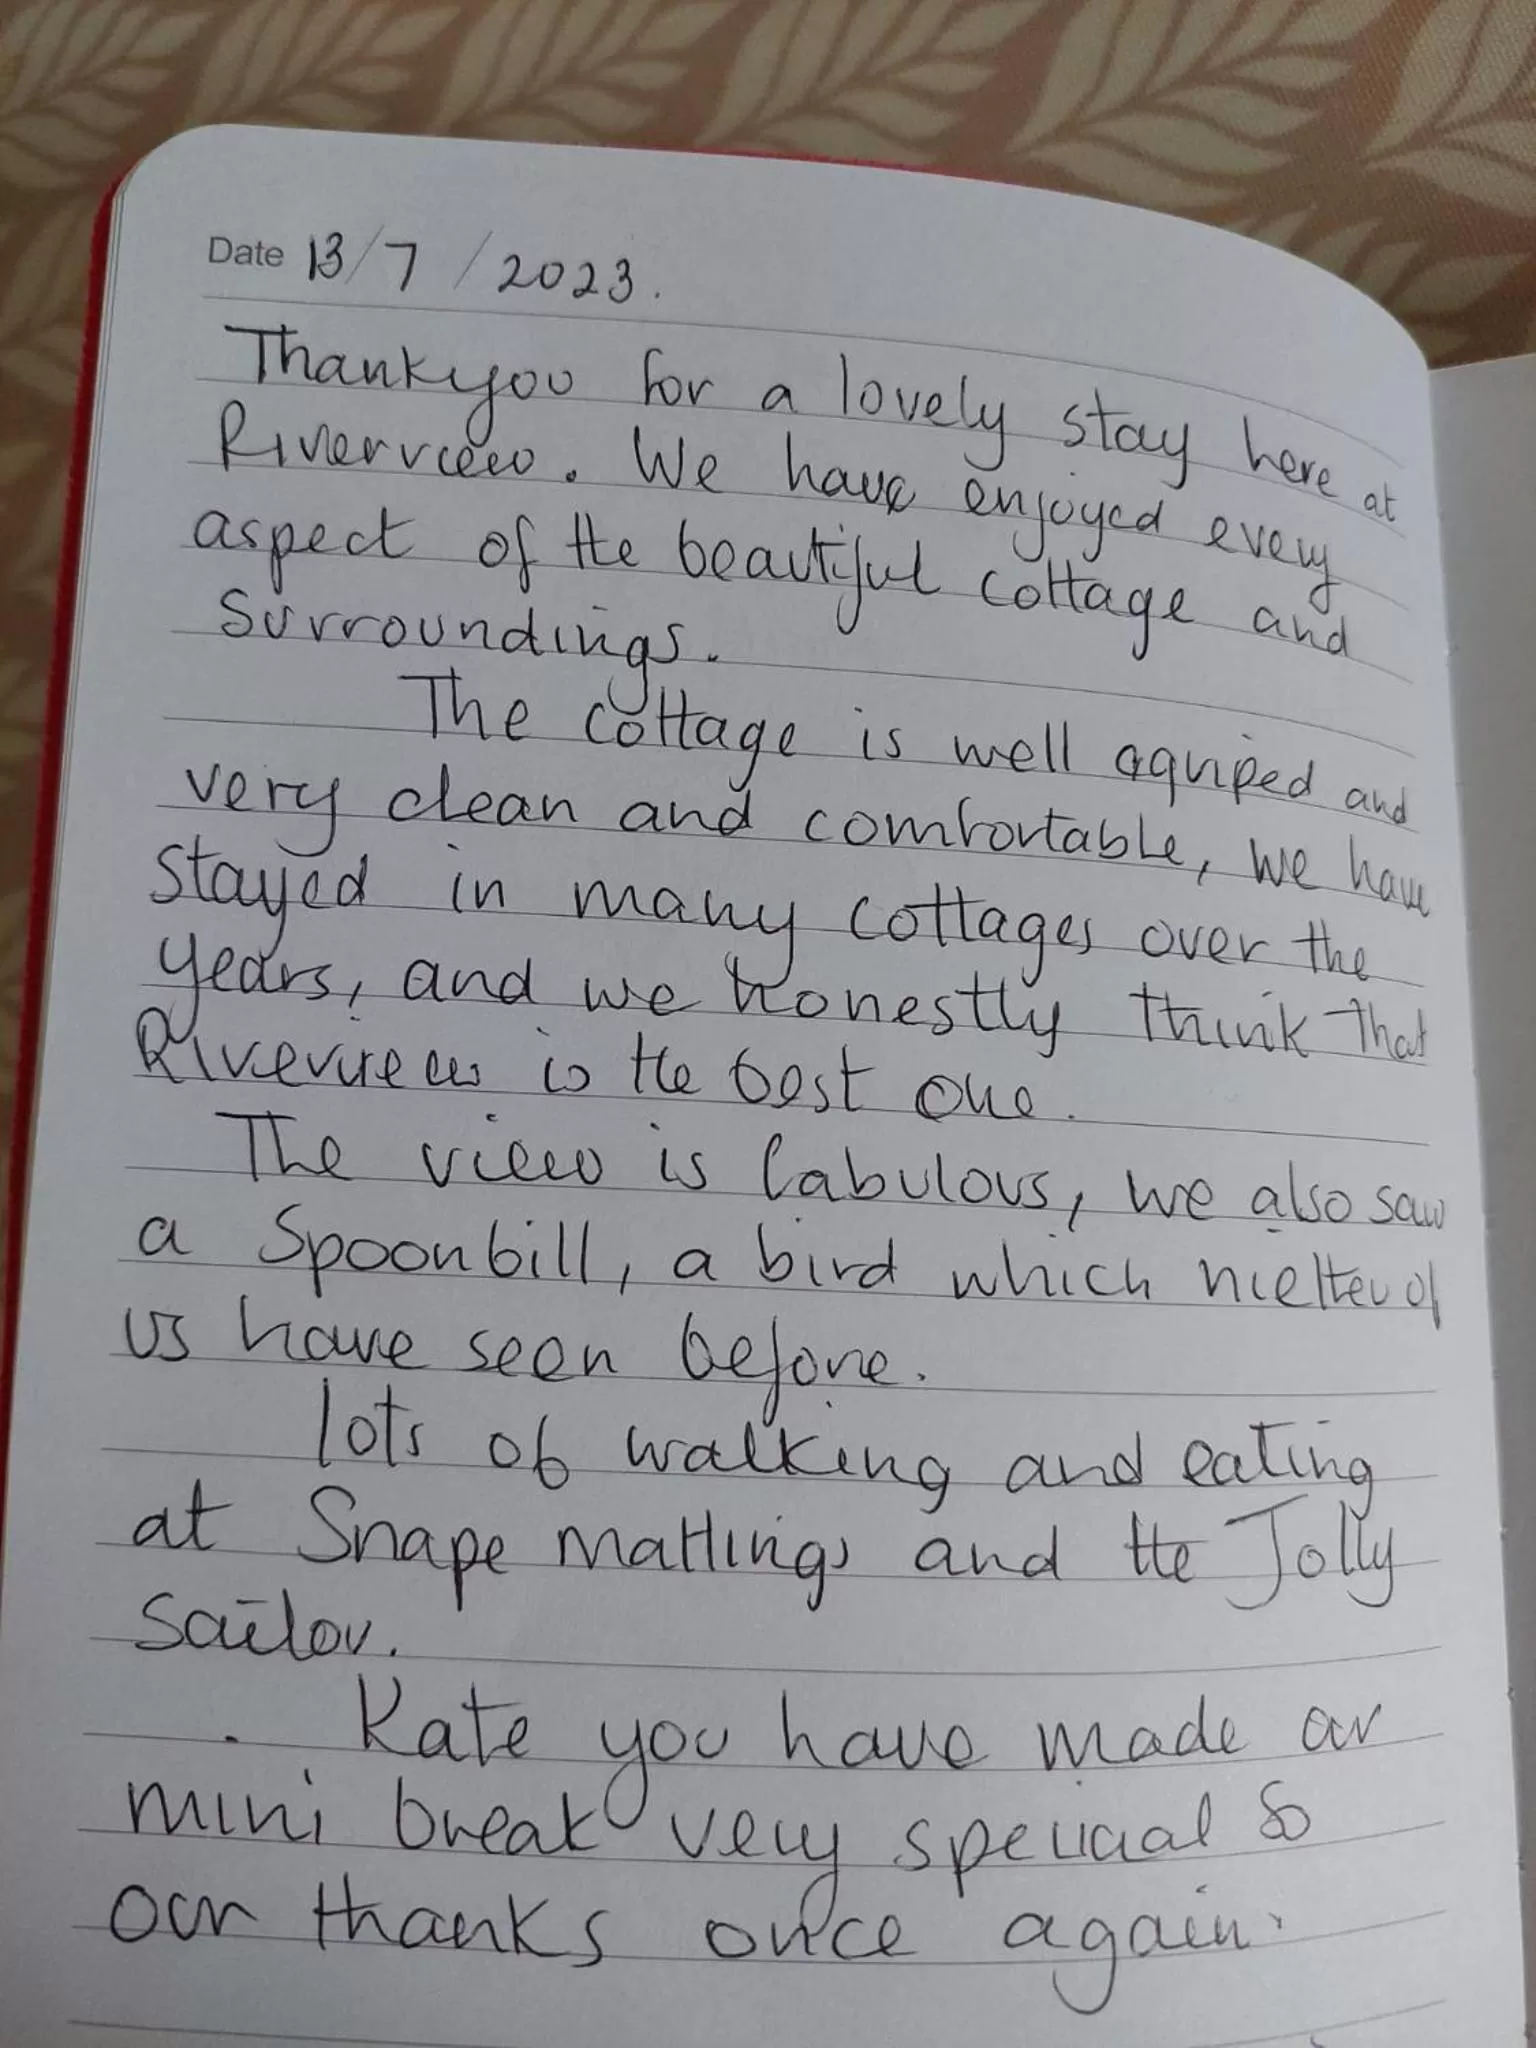 Date 13/7/2023.
Thankyou for a lovely stay here at
Riverview. We have enjoyed every
aspect of the beautiful cottage and
surroundings.
The cottage is well aquiped and
very clean and comfortable, we have
stayed in many cottages over the
years, and we honestly think that
Riverview is the best one.
The view is fabulous, we also saw
a Spoonbill, a bird which niether of
us have seen before.
lots of walking and eating
at Snape Maltings and the Jolly
Sailor.
Kate you have made our
mini break very special so
our thanks once again.